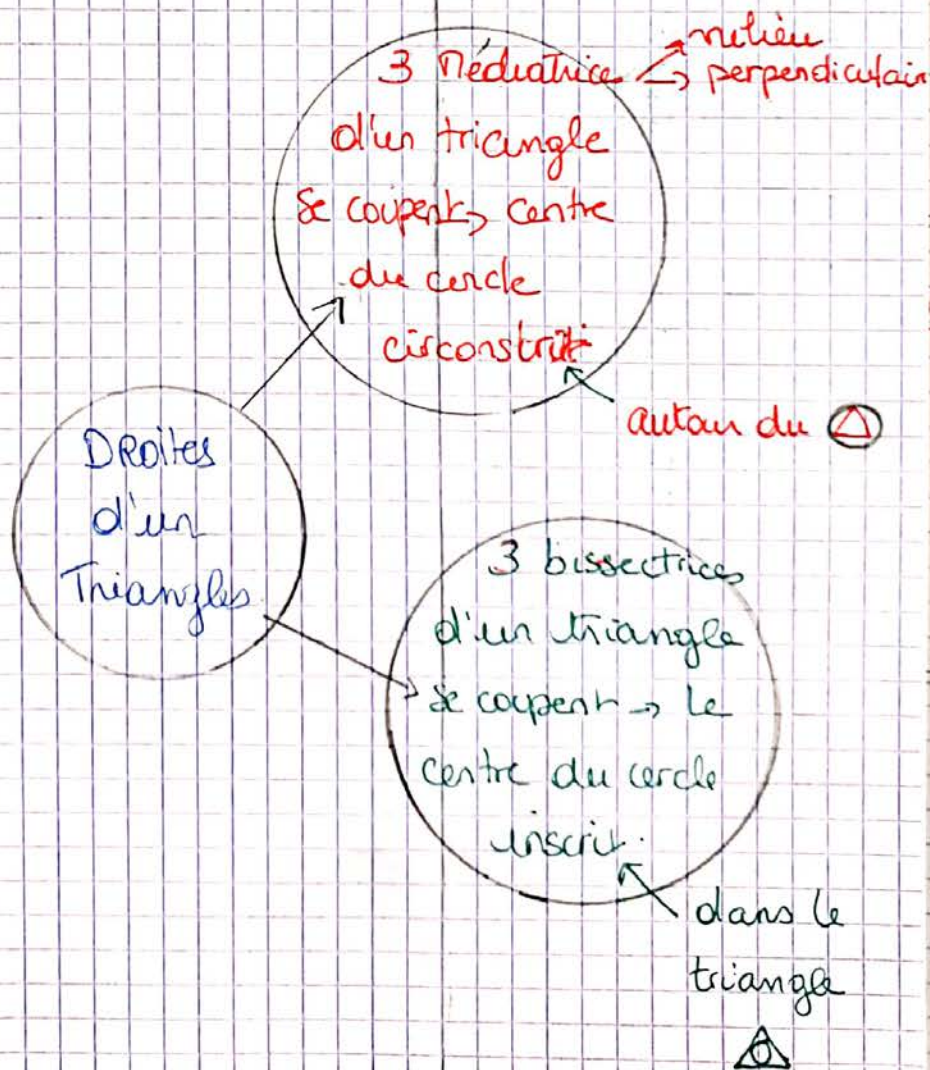 3 Médiatrice → milieu
→ perpendiculair
d'un triangle
se coupent → centre
du cercle
circonstrit
autour du
DRoites
d'un
Triangles
3 bissectrices
d'un triangle
se coupent → le
centre du cercle
inscrit.
dans le
triangle